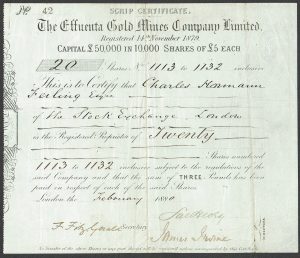 42
SCRIP CERTIFICATE.
The Effuenta Gold Mines Company Limited.
Registered 14th November 1879.
CAPITAL £50,000 IN 10000 SHARES OF £5 EACH
20 Shares No 1113 to 1132 inclusive
This is to Certify that Charles Hermann
of The Stock Exchange London
is the Registered Proprietor of Twenty
Shares numbered
1113 to 1132 inclusive subject to the regulations of the
said Company and that the sum of THREE Pounds has been
paid in respect of each of the said Shares
London the February 1880
F. FitzGerald Secretary
James Irvine